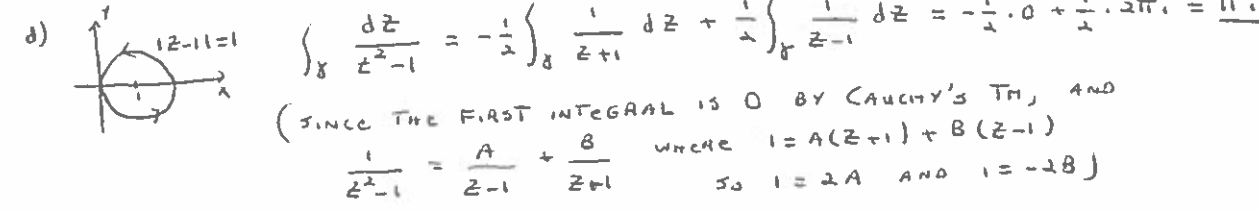 d) y |z-1|=1 ∫_γ dz/(z²-1) = -1/2 ∫_γ 1/(z+1) dz + 1/2 ∫_γ 1/(z-1) dz = -1/2 · 0 + 1/2 · 2πi = πi
1 x
(SINCE THE FIRST INTEGRAL IS 0 BY CAUCHY'S TH, AND
1/(z²-1) = A/(z-1) + B/(z+1) WHERE 1 = A(z+1) + B(z-1)
SO 1 = 2A AND 1 = -2B)